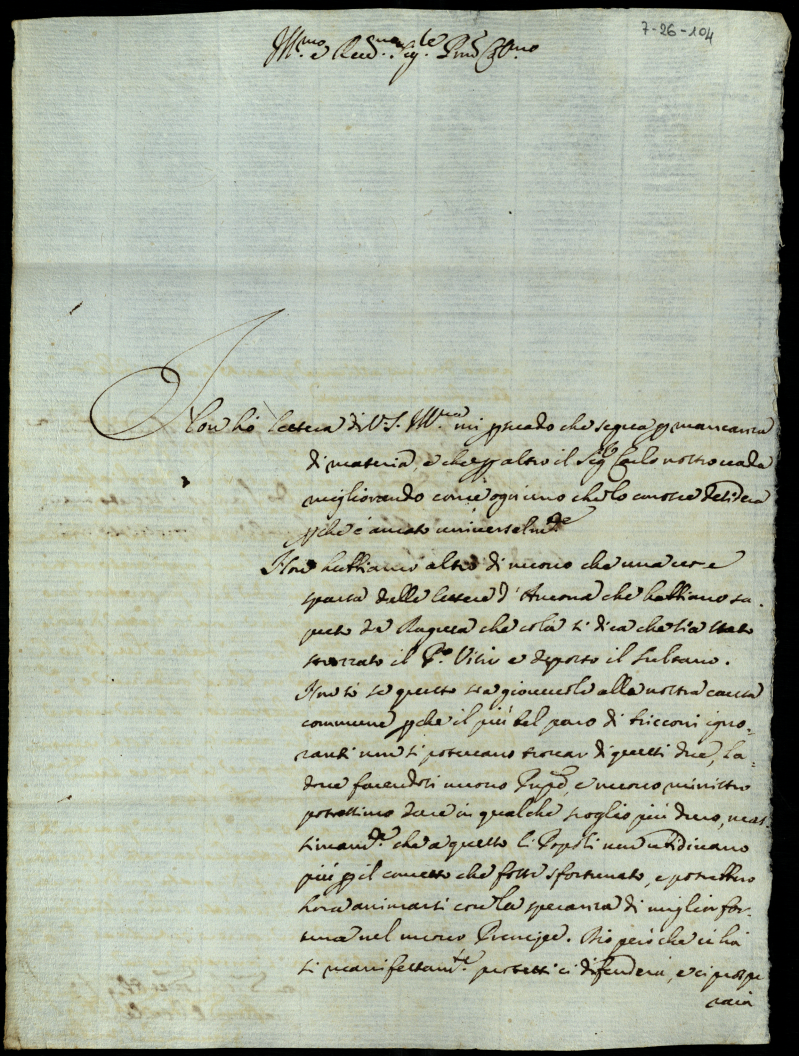 7-26-104
Ill.mo e Rev.mo Sig.re
Non hò lettera di V. S. Ill.ma mi persuado che segua per mancanza
di materia, e che per altro il Sig.r Carlo nostro vada
migliorando come ogni uno che lo conosce desidera
perche è amato universalm.te
Non habbiamo altro di nuovo che una voce
sparsa dalle lettere d'Ancona che habbiano sa-
puto da Ragusa che colà si dica che sia stato
strozzato il P.o Visir e deposto il Sultano.
Non so se questo sia giovevole alla nostra causa
commune perche il più bel paro di igno-
ranti non si potevano trovar di questi due, La
dove facendosi nuovo e nuovo ministro
potressimo dare in qualche scoglio più duro, mas-
simam.te che a questo li Popoli non ubidivano
più per il concetto che fosse sfortunato, e potrebbero
hora animarsi con la speranza di miglior for-
tuna nel nuovo Prencipe. Dio però che ci hà
sì manifestam.te protetti ci difenderà, e ci prospe
rarà